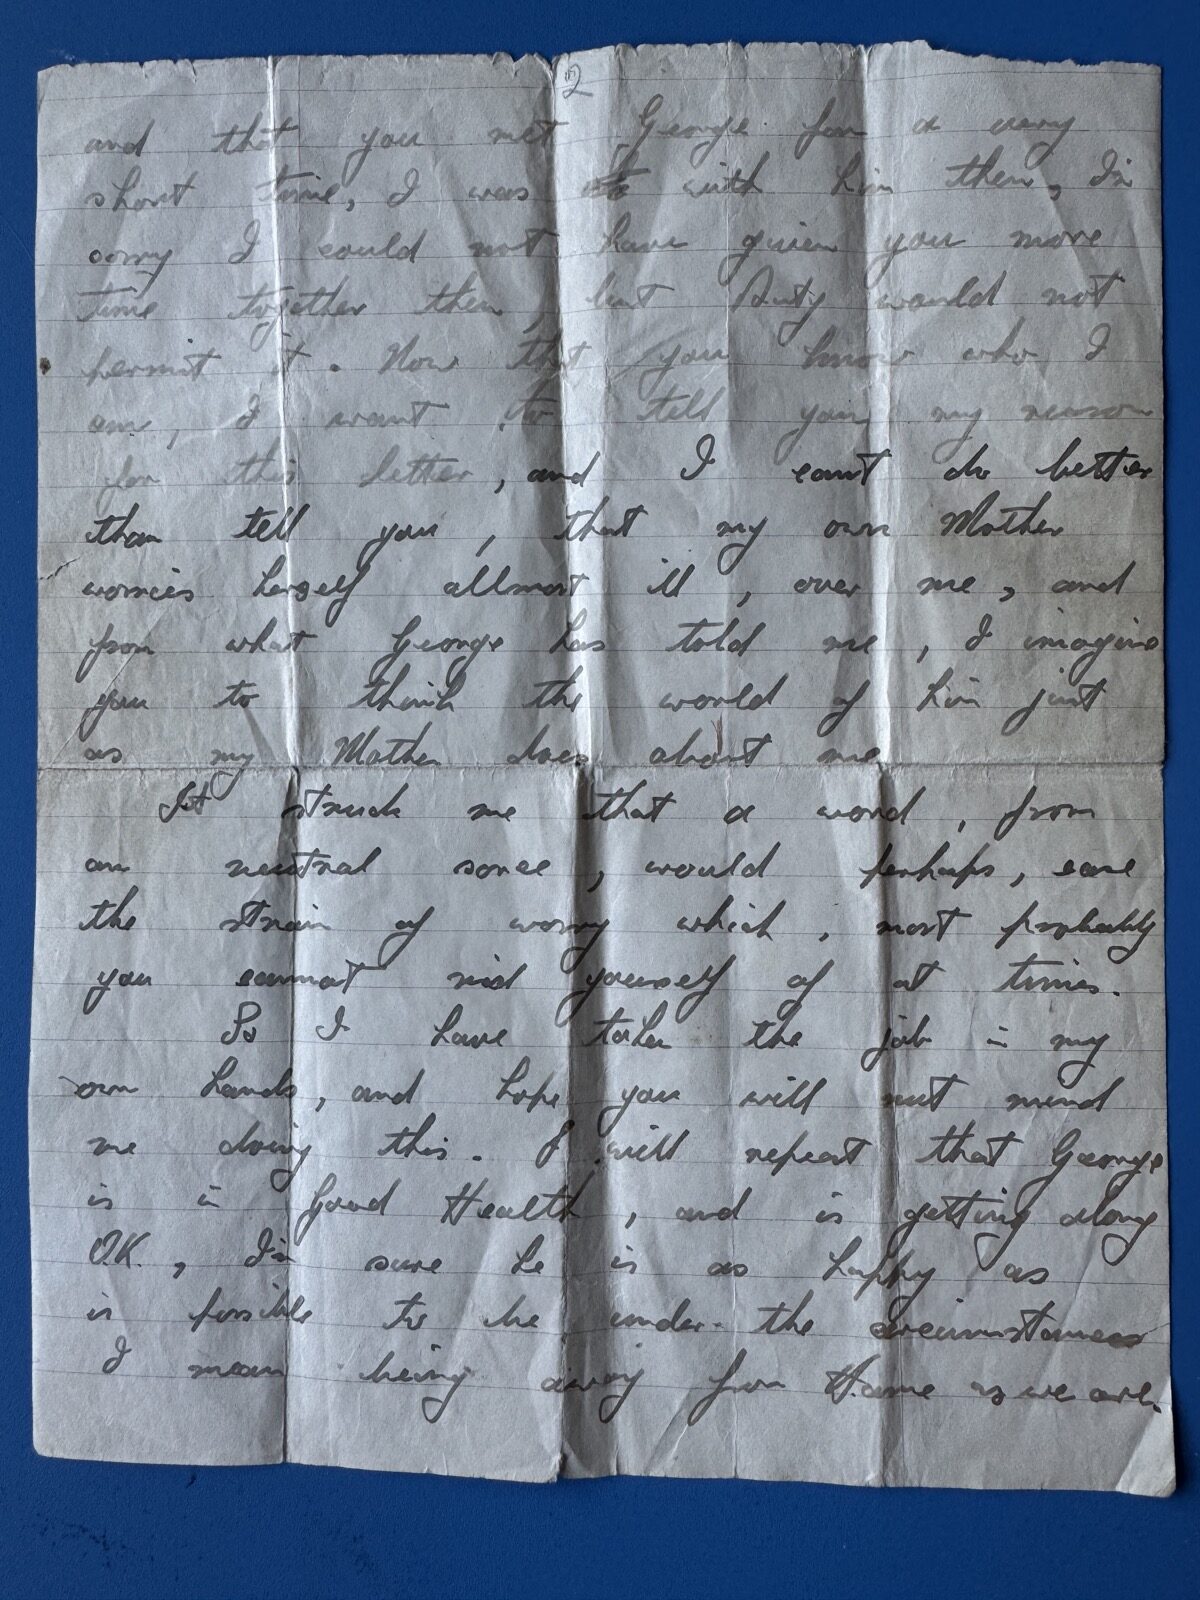 2
and that you met George for a very
short time, I was with him then, I'm
sorry I could not have given you more
time together then, but Duty would not
permit it. Now that you know who I
am, I want to tell you my reason
for this letter, and I can't do better
than tell you, that my own Mother
worries herself allmost ill, over me, and
from what George has told me, I imagine
you to think the world of him just
as my Mother does about me
It struck me that a word, from
an neutral sorce, would perhaps, ease
the strain of worry which, most probably
you cannot rid yourself of at times.
So I have taken the job in my
own hands, and hope you will not mind
me doing this. I will repeat that George
is in Good Health, and is getting along
O.K., I'm sure he is as happy as
is possible to be under the circumstances
I mean being away from Home as we are.